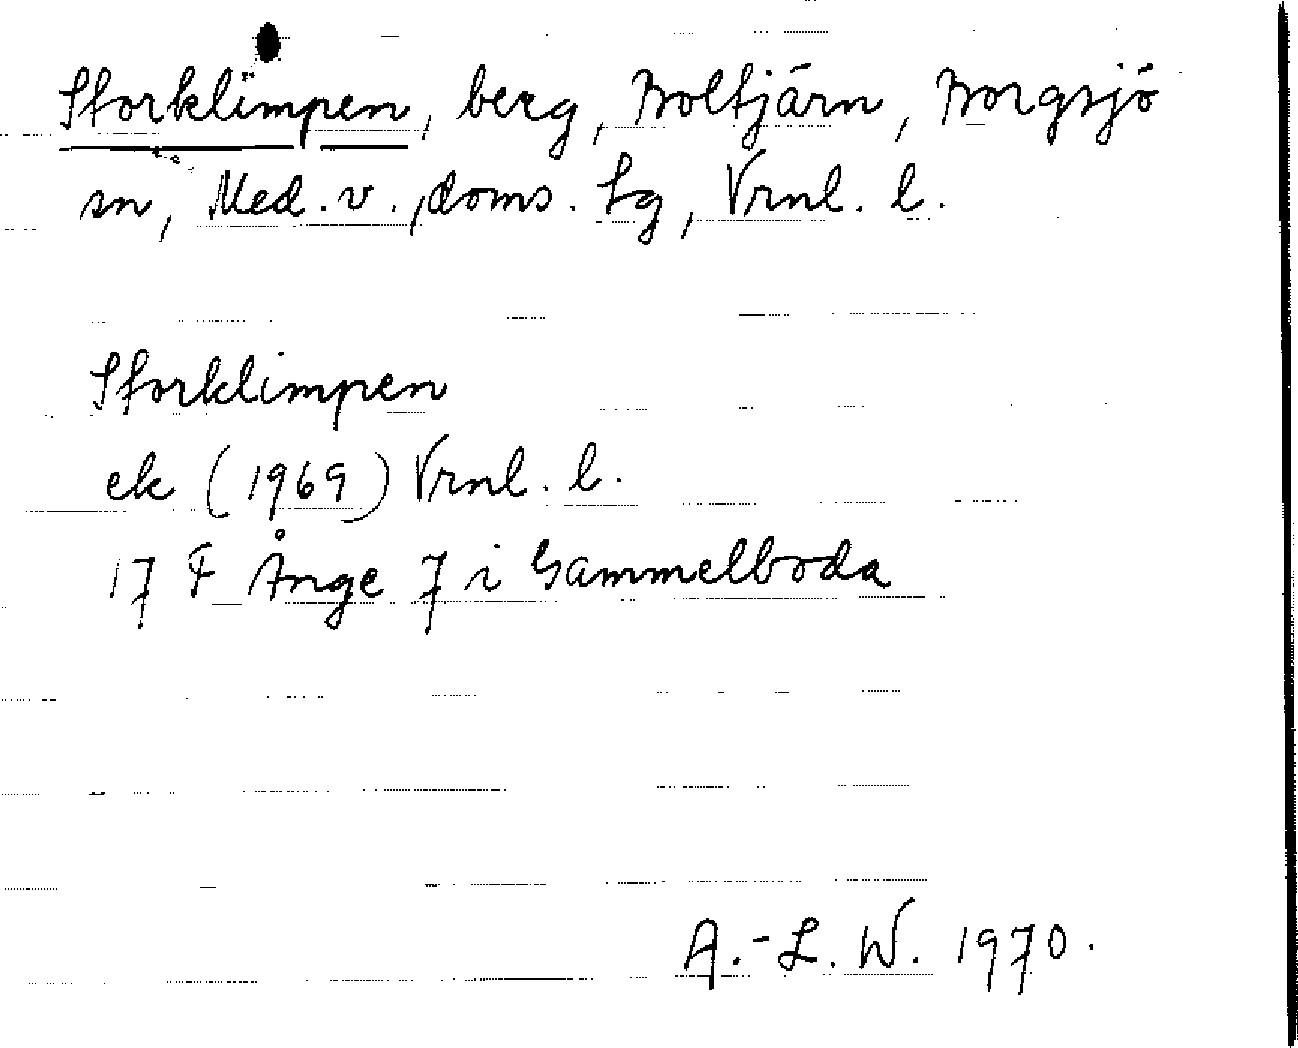 Storklimpen, berg, Boltjärn, Borgsjö
sn, Med. v., doms. Lg, Vrnl. l.
Storklimpen
ek (1969) Vrnl. l.
17 F Ånge 7 i Gammelboda
A.-L. W. 1970.